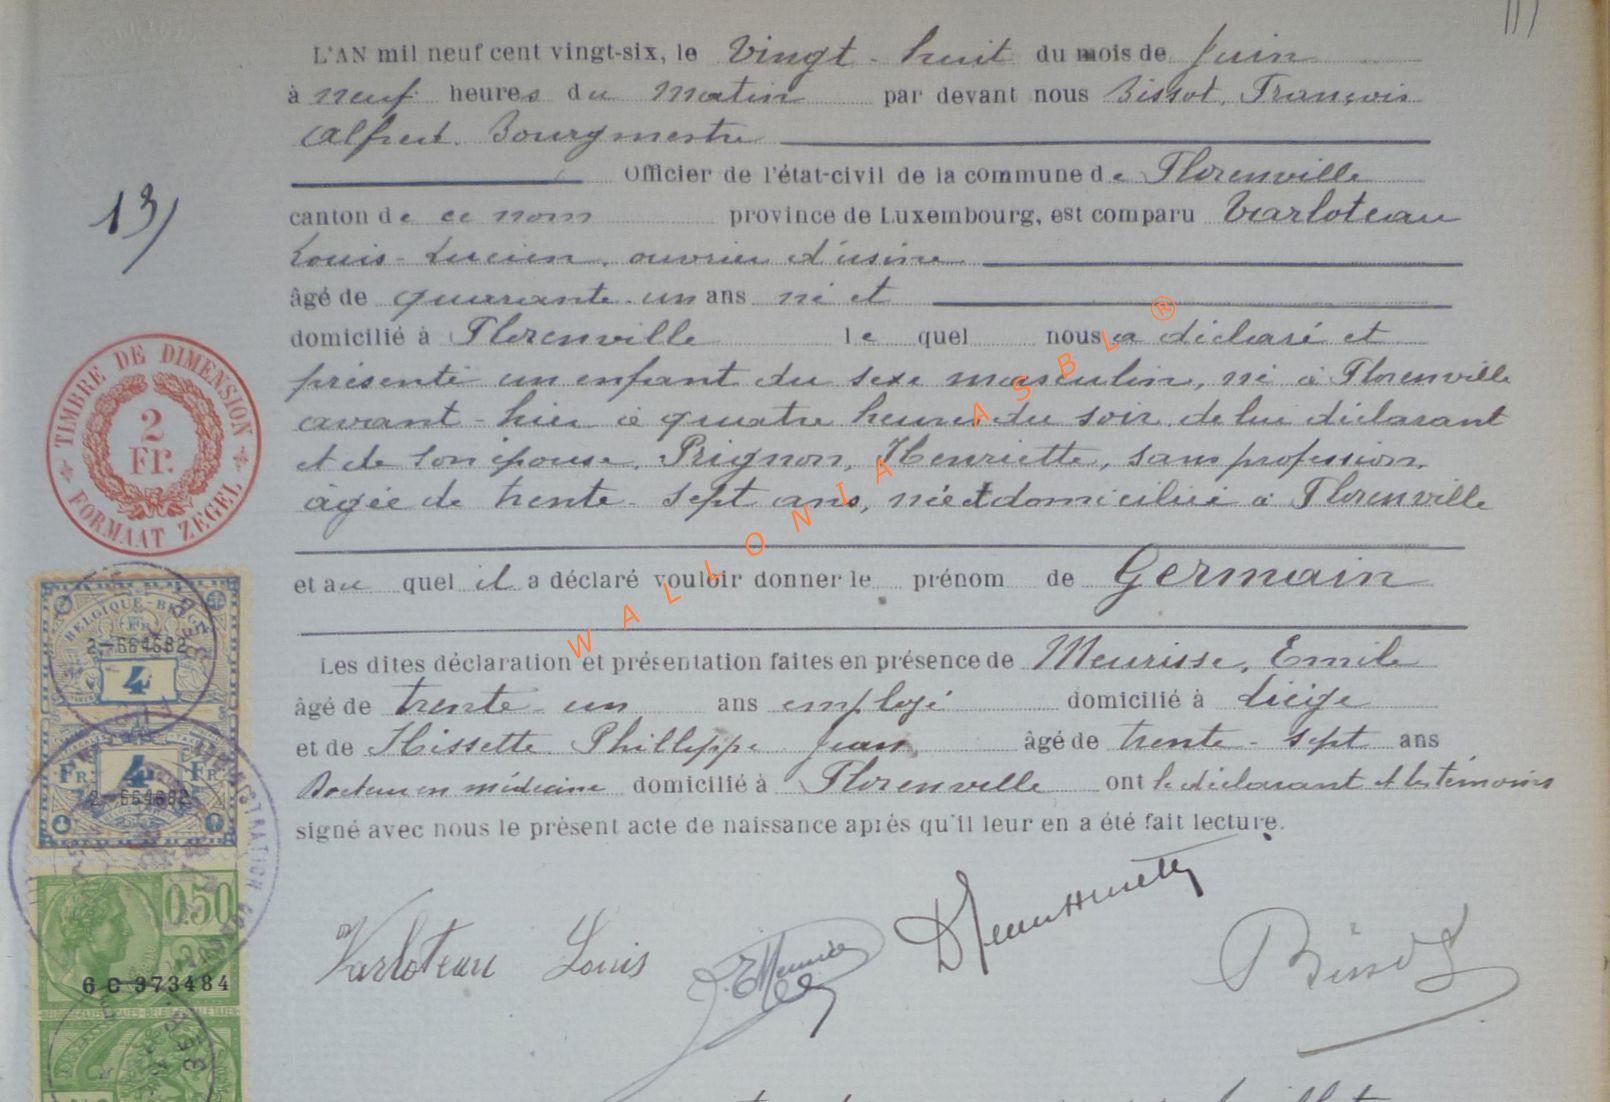 L'AN mil neuf cent vingt-six, le Vingt-huit du mois de Juin
à neuf heures du Matin par devant nous Bissot, François
Alfred. Bourgmestre
Officier de l'état-civil de la commune de Florenville
canton de ce nom province de Luxembourg, est comparu Varloteau
Louis-Lucien, ouvrier d'usine
âgé de quarante-un ans né et
domicilié à Florenville le quel nous a déclaré et
présenté un enfant du sexe masculin, né à Florenville
avant-hier à quatre heures du soir, de lui déclarant
et de son épouse, Prignon, Henriette, sans profession,
âgée de trente-sept ans, née et domiciliée à Florenville
et au quel il a déclaré vouloir donner le prénom de Germain
Les dites déclaration et présentation faites en présence de Meurisse, Emile
âgé de trente-un ans employé domicilié à Liége
et de Hissette Philippe Jean, âgé de trente-sept ans
Docteur en médecine domicilié à Florenville ont le déclarant et les témoins
signé avec nous le présent acte de naissance après qu'il leur en a été fait lecture.
Varloteau Louis
Bissot
13/
TIMBRE DE DIMENSION
2
Fr.
FORMAAT ZEGEL
BELGIQUE-BELGIË
Fr.
2-664682
4
Fr. 4 Fr.
2-664682
0.50
6C 373484
WALLONIA ASBL ®